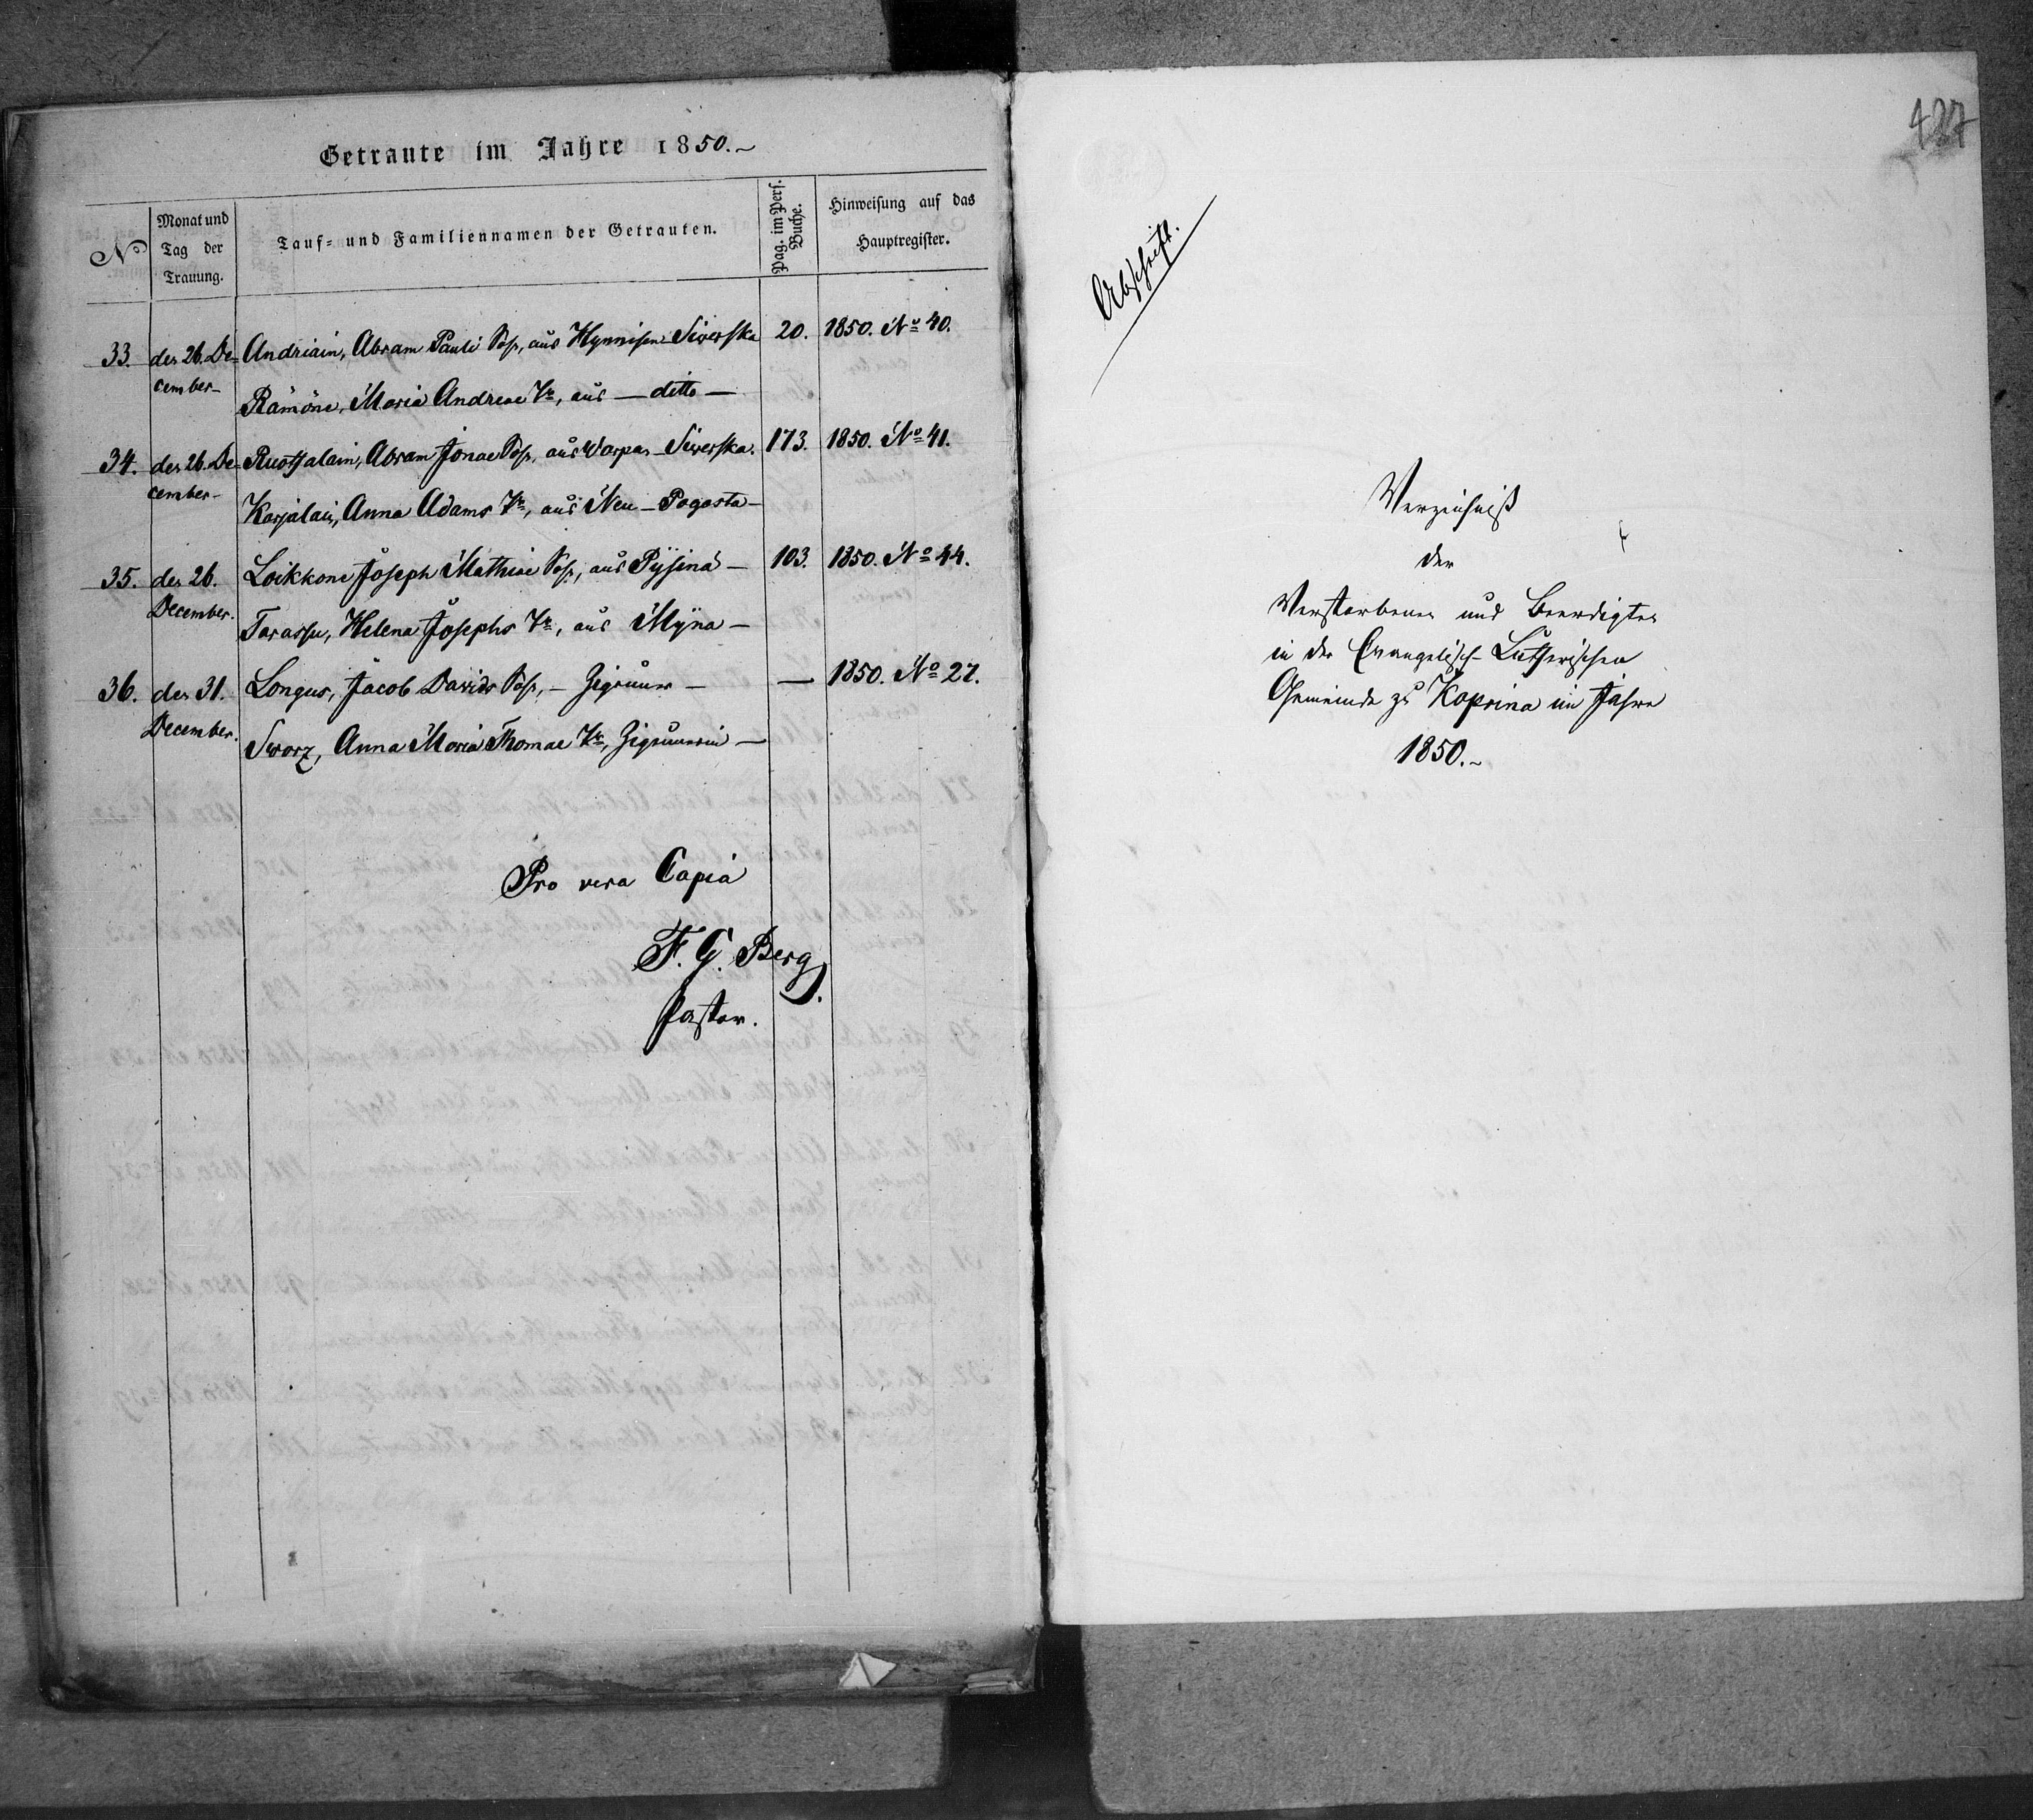 Getraute im Jahre 1850.~
No
Monat und Tag der Trauung.
Tauf- und Familiennamen der Getrauten.
Pag. im Pers. Buche.
Hinweisung auf das Hauptregister.
33. den 26. De- Andriain, Abram Pauli Sohn, aus Hynnisen-Siwerska 20. 1850. No 40.
cember- Rämöne, Maria Andreae Tr, aus — ditto —
34. den 26. De- Ruotsalain, Abram Jonae Sohn, aus Warpas-Siwerska. 173. 1850. No 41.
cember- Karjalain, Anna Adams Tr, aus Neu-Pogosta-
35. den 26. Loikkone Joseph Mathiae Sohn, aus Pÿsinä — 103. 1850. No 44.
December. Tarassu, Helena Josephs Tr, aus Mÿna —
36. den 31. Longus, Jacob Davids Sohn, — Zigeuner — — 1850. No 27.
December. Sworz, Anna Maria Thomae Tr, Zigeunerin —
Pro vera Copia
F. G. Berg
Pastor.
427
Abschrift.
Verzeichniß
der
Verstorbenen und Beerdigten
in der Evangelisch-Lutherischen
Gemeinde zu Koprina im Jahre
1850.~